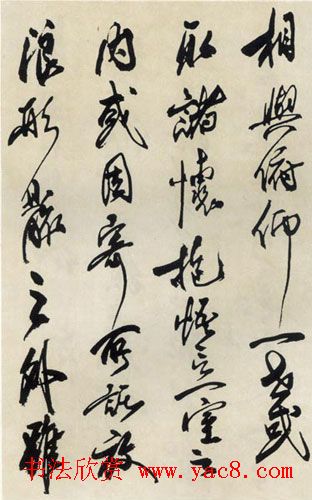 相與俯仰一世或
取諸懷抱悟言一室之
内或因寄所託放
浪形骸之外雖
书法欣赏 www.yac8.com